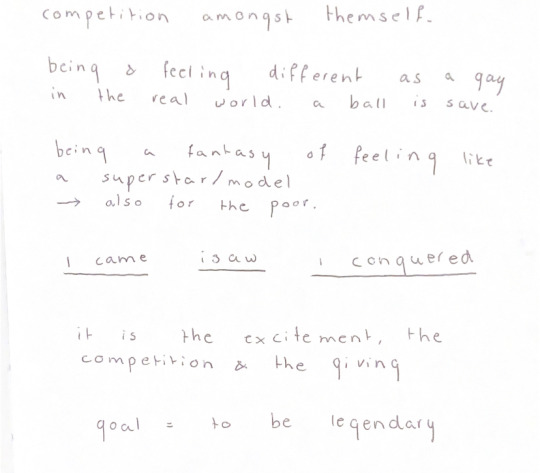 competition amongst themself.
being & feeling different as a gay
in the real world. a ball is save.
being a fantasy of feeling like
a superstar/model
→ also for the poor.
I came i saw I conquered
it is the excitement, the
competition & the giving
goal = to be legendary